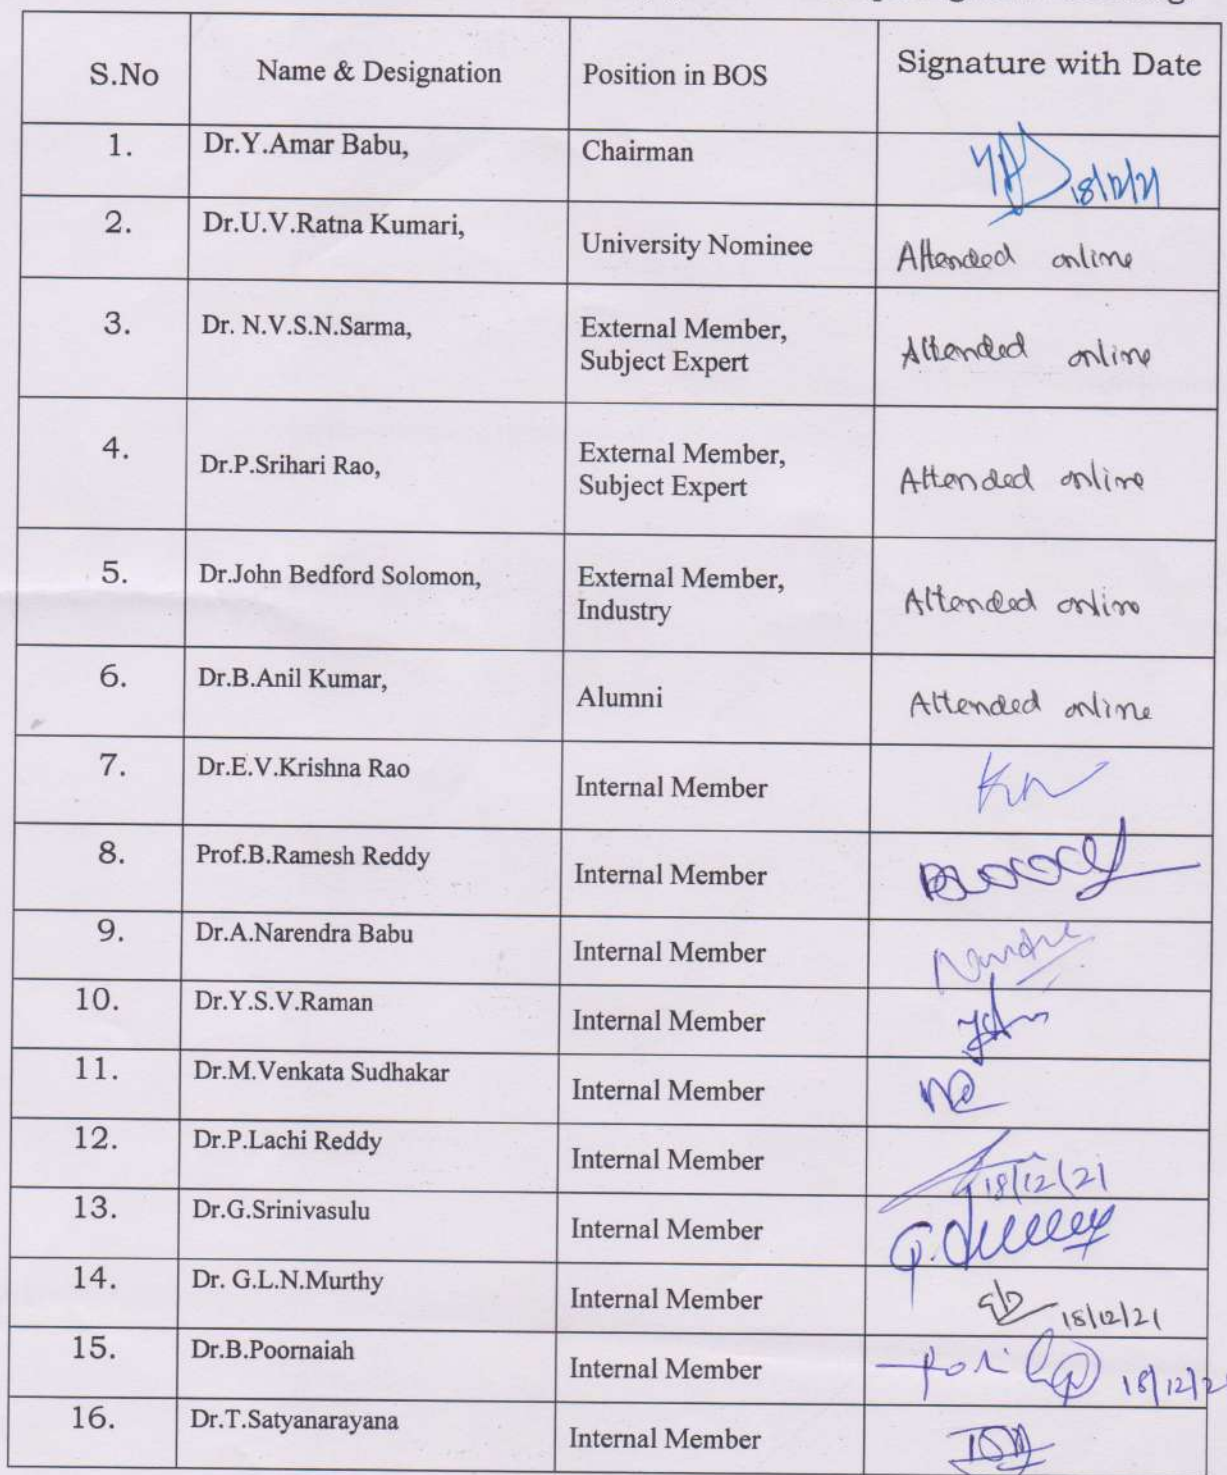 S.No Name & Designation Position in BOS Signature with Date
1. Dr.Y.Amar Babu, Chairman 18/12/21
2. Dr.U.V.Ratna Kumari, University Nominee Attended online
3. Dr. N.V.S.N.Sarma, External Member,
Subject Expert Attended online
4. Dr.P.Srihari Rao, External Member,
Subject Expert Attended online
5. Dr.John Bedford Solomon, External Member,
Industry Attended online
6. Dr.B.Anil Kumar, Alumni Attended online
7. Dr.E.V.Krishna Rao Internal Member
8. Prof.B.Ramesh Reddy Internal Member
9. Dr.A.Narendra Babu Internal Member
10. Dr.Y.S.V.Raman Internal Member
11. Dr.M.Venkata Sudhakar Internal Member
12. Dr.P.Lachi Reddy Internal Member 18/12/21
13. Dr.G.Srinivasulu Internal Member
14. Dr. G.L.N.Murthy Internal Member 18/12/21
15. Dr.B.Poornaiah Internal Member 18/12/2
16. Dr.T.Satyanarayana Internal Member